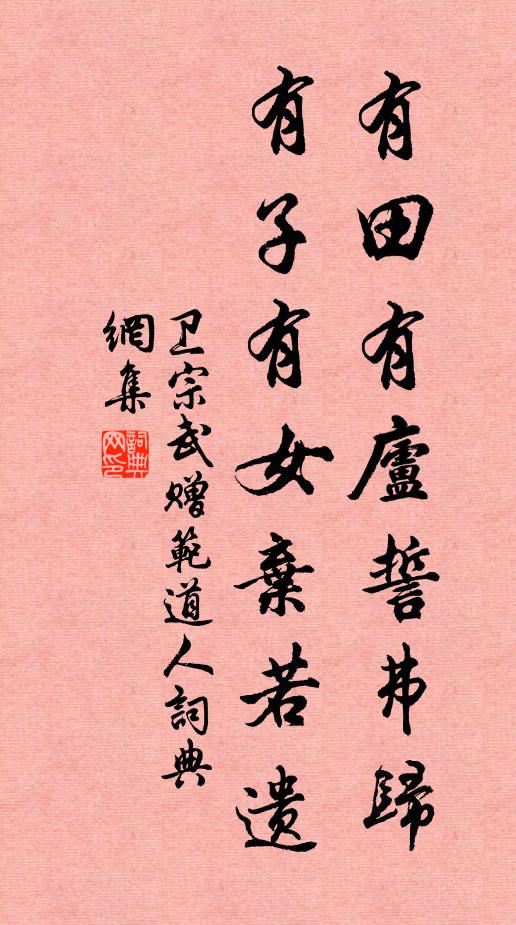 有田有廬誓弗歸
有子有女棄若遺
卫宗武贈範道人詞典
網集
詞典
网印